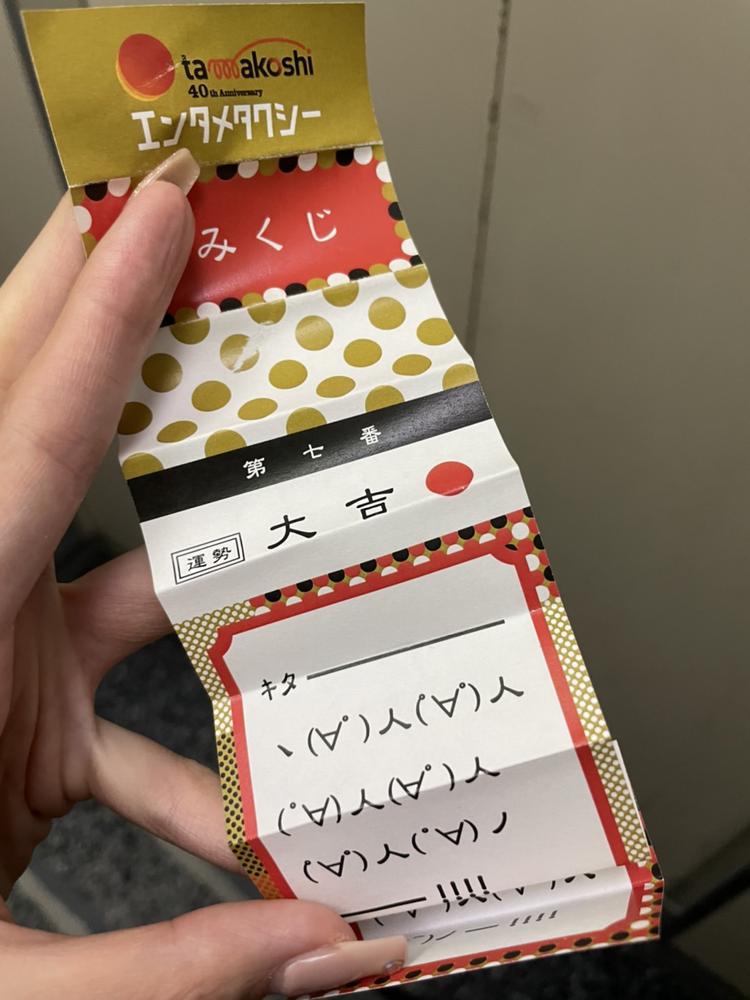 tamakoshi
40th Anniversary
エンタメタクシー
みくじ
第七番
運勢 大吉
ｷﾀ━━━━━━━
ヽ(∀ﾟ)人(ﾟ∀ﾟ)人
(ﾟ∀ﾟ)人(∀ﾟ)人
(∀ﾟ)人(ﾟ∀ﾟ)ノ
━━━!!!!